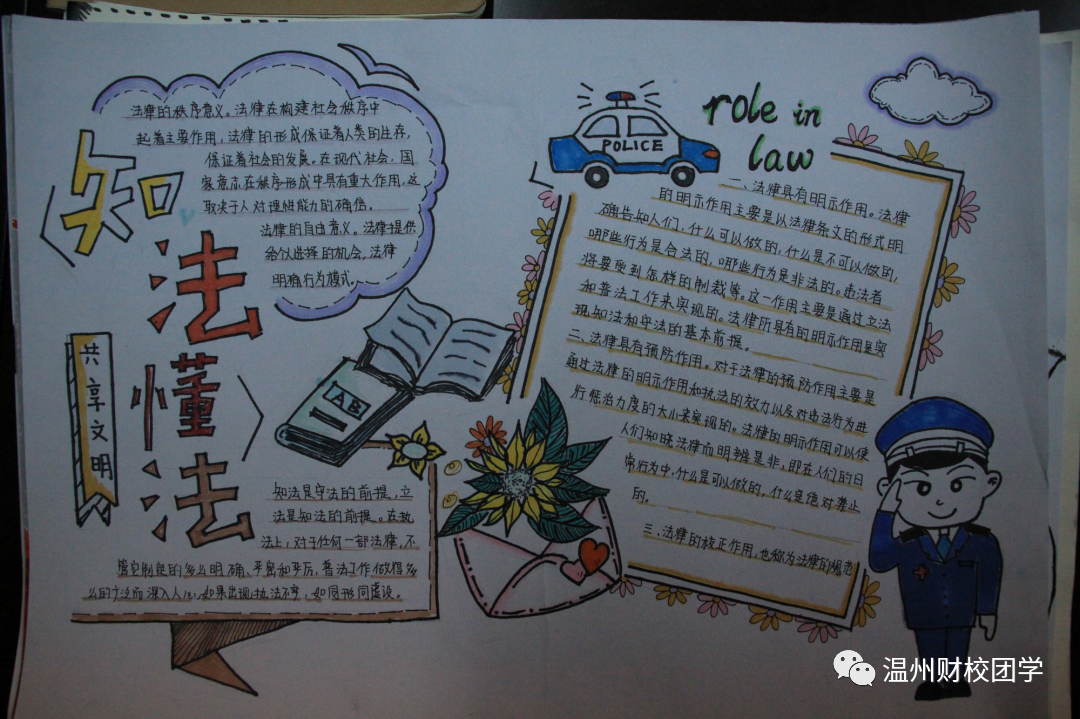 知法懂法
共享文明
法律的秩序意义。法律在构建社会秩序中
起着主要作用，法律的形成保证着人类的生存，
保证着社会的发展。在现代社会，国
家意志在秩序形成中具有重大作用，这
取决于人对理性能力的确信。
法律的自由意义。法律提供
给个人选择的机会，法律
明确行为模式。
AB
知法是守法的前提，立
法是知法的前提。在执
法上，对于任何一部法律，不
管它制定的多么明确、平密和平厉，普法工作做得多
么的广泛而深入人心，如果出现执法不严，如同形同虚设。
POLICE
role in
law
一、法律具有明示作用。法律
的明示作用主要是以法律条文的形式明
确告知人们，什么可以做的，什么是不可以做的，
哪些行为是合法的，哪些行为是非法的。违法者
将要受到怎样的制裁等。这一作用主要是通过立法
和普法工作来实现的。法律所具有的明示作用是实
现知法和守法的基本前提。
二、法律具有预防作用。对于法律的预防作用主要是
通过法律的明示作用和执法的效力以及对违法行为进
行惩治力度的大小来实现的。法律的明示作用可以使
人们知晓法律而明辨是非，即在人们的日
常行为中，什么是可以做的，什么是绝对禁止
的。
三、法律的校正作用，也称为法律的规范
温州财校团学